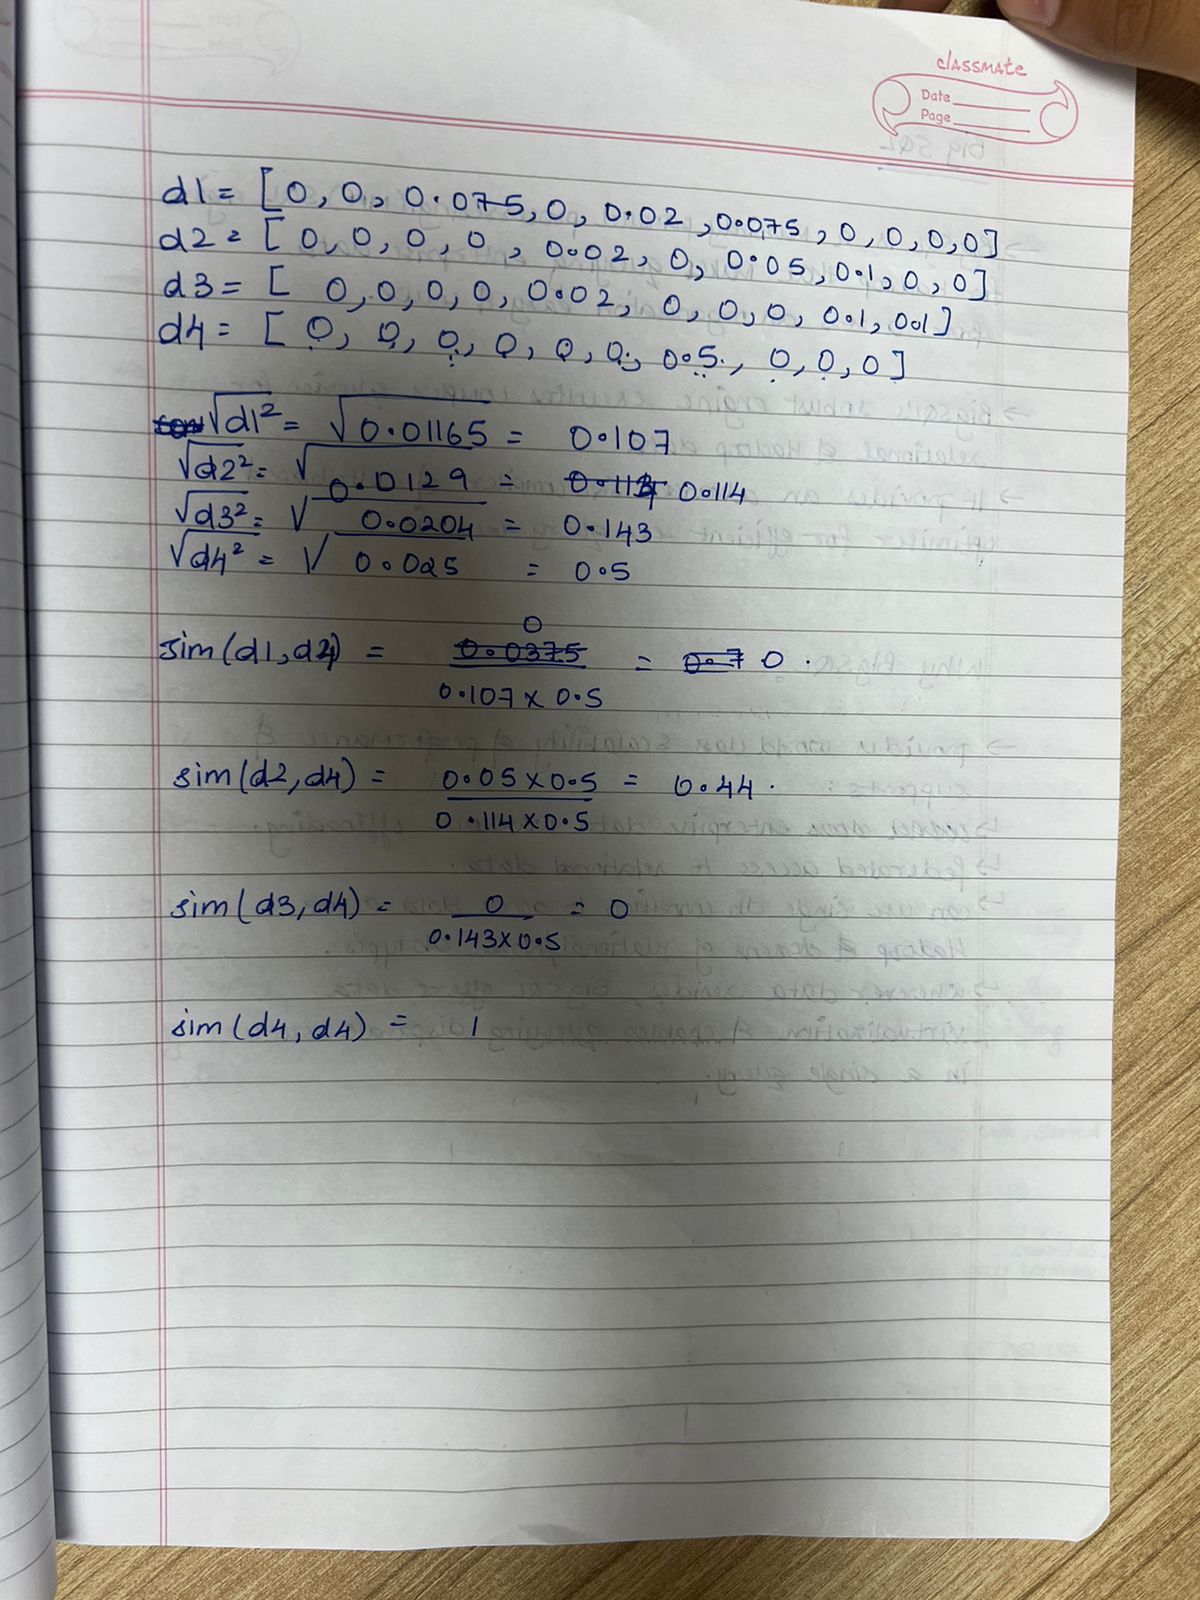 classmate
Date
Page
d1 = [0, 0, 0.075, 0, 0.02, 0.075, 0, 0, 0, 0]
d2 = [0, 0, 0, 0, 0.02, 0, 0.05, 0.1, 0, 0]
d3 = [0, 0, 0, 0, 0.02, 0, 0, 0, 0.1, 0.1]
d4 = [0, 0, 0, 0, 0, 0, 0.5, 0, 0, 0]
√d1² = √0.01165 = 0.107
√d2² = √0.0129 = 0.114
√d3² = √0.0204 = 0.143
√d4² = √0.025 = 0.5
0
sim(d1, d4) = 0.0375 = 0.7 0.
0.107 x 0.5
sim(d2, d4) = 0.05 x 0.5 = 0.44.
0.114 x 0.5
sim(d3, d4) = 0 = 0
0.143 x 0.5
sim(d4, d4) = 1